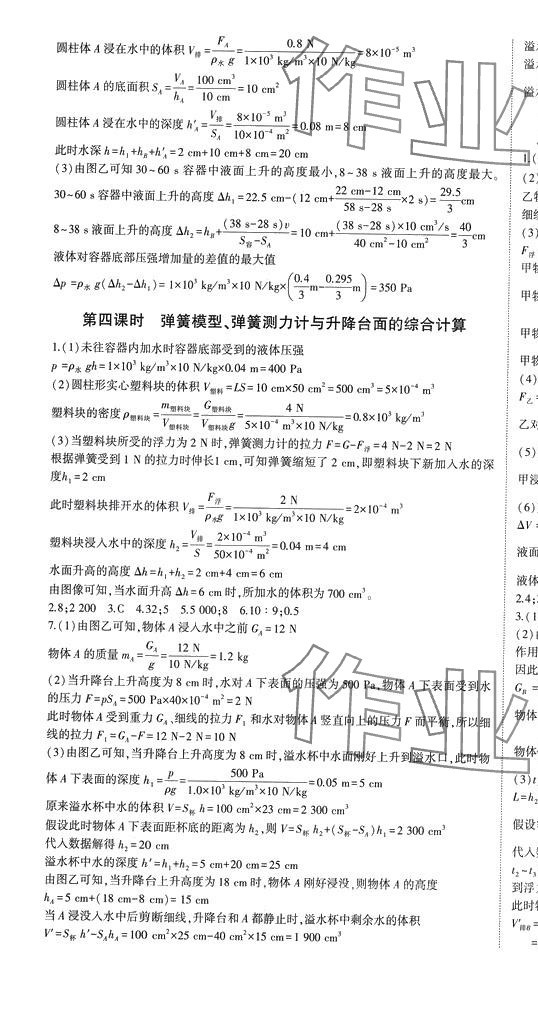 圆柱体 A 浸在水中的体积 V排 = FA/(ρ水 g) = 0.8 N/(1×10³ kg/m³×10 N/kg) = 8×10⁻⁵ m³
圆柱体 A 的底面积 SA = VA/hA = 100 cm³/10 cm = 10 cm²
圆柱体 A 浸在水中的深度 h′A = V排/SA = 8×10⁻⁵ m³/10×10⁻⁴ m² = 0.08 m = 8 cm
此时水深 h = h₁+hB+h′A = 2 cm+10 cm+8 cm = 20 cm
(3)由图乙可知 30~60 s 容器中液面上升的高度最小,8~38 s 液面上升的高度最大。
30~60 s 容器中液面上升的高度 Δh₁ = 22.5 cm-(12 cm+(22 cm-12 cm)/(58 s-28 s)×2 s) = 29.5/3 cm
8~38 s 液面上升的高度 Δh₂ = hB+(38 s-28 s)v/(S容-SA) = 10 cm+(38 s-28 s)×10 cm³/s/(40 cm²-10 cm²) = 40/3 cm
液体对容器底部压强增加量的差值的最大值
Δp = ρ水 g(Δh₂-Δh₁) = 1×10³ kg/m³×10 N/kg×(0.4/3 m-0.295/3 m) = 350 Pa
第四课时 弹簧模型、弹簧测力计与升降台面的综合计算
1.(1)未往容器内加水时容器底部受到的液体压强
p = ρ水 gh = 1×10³ kg/m³×10 N/kg×0.04 m = 400 Pa
(2)圆柱形实心塑料块的体积 V塑料 = LS = 10 cm×50 cm² = 500 cm³ = 5×10⁻⁴ m³
塑料块的密度 ρ塑料块 = m塑料块/V塑料块 = G塑料块/(V塑料块g) = 4 N/(5×10⁻⁴ m³×10 N/kg) = 0.8×10³ kg/m³
(3)当塑料块所受的浮力为 2 N 时,弹簧测力计的拉力 F = G-F浮 = 4 N-2 N = 2 N
根据弹簧受到 1 N 的拉力时伸长1 cm,可知弹簧缩短了 2 cm,即塑料块下新加入水的深
度h₁ = 2 cm
此时塑料块排开水的体积 V排 = F浮/(ρ水g) = 2 N/(1×10³ kg/m³×10 N/kg) = 2×10⁻⁴ m³
塑料块浸入水中的深度 h₂ = V排/S = 2×10⁻⁴ m³/50×10⁻⁴ m² = 0.04 m = 4 cm
水面升高的高度 Δh = h₁+h₂ = 2 cm+4 cm = 6 cm
由图像可知,当水面升高 Δh = 6 cm 时,所加水的体积为 700 cm³。
2.8;2 200 3.C 4.32;5 5.5 000;8 6.10∶9;0.5
7.(1)由图乙可知,物体 A 浸入水中之前 GA = 12 N
物体 A 的质量 mA = GA/g = 12 N/10 N/kg = 1.2 kg
(2)当升降台上升高度为 8 cm 时,水对 A 下表面的压强为 500 Pa,物体 A 下表面受到水
的压力 F = pSA = 500 Pa×40×10⁻⁴ m² = 2 N
此时物体 A 受到重力 GA、细线的拉力 F₁ 和水对物体 A 竖直向上的压力 F 而平衡,所以细
线的拉力 F₁ = GA-F = 12 N-2 N = 10 N
(3)由图乙可知,当升降台上升高度为 8 cm 时,溢水杯中水面刚好上升到溢水口,此时物
体 A 下表面的深度 h₁ = p/(ρg) = 500 Pa/(1.0×10³ kg/m³×10 N/kg) = 0.05 m = 5 cm
原来溢水杯中水的体积 V = S杯 h = 100 cm²×23 cm = 2 300 cm³
假设此时物体 A 下表面距杯底的距离为 h₂,则 V = S杯 h₂+(S杯-SA)h₁ = 2 300 cm³
代入数据解得 h₂ = 20 cm
溢水杯中水的深度 h′ = h₁+h₂ = 5 cm+20 cm = 25 cm
由图乙可知,当升降台上升高度为 18 cm 时,物体 A 刚好浸没,则物体 A 的高度
hA = 5 cm+(18 cm-8 cm) = 15 cm
当 A 浸没入水中后剪断细线,升降台和 A 都静止时,溢水杯中剩余水的体积
V′ = S杯 h′-SAhA = 100 cm²×25 cm-40 cm²×15 cm = 1 900 cm³
作业
作业
溢水
溢水
溢水
1.(
(2)
乙物
细线
(3)
F浮
甲物
甲物
甲物
甲物
(4)
F乙
乙对
(5)
甲浸
(6)
ΔV =
液面
液体
2.4;
3.(1
(2)
作用
因此
GB =
物体
物体
(3)t
L = h₂
假设
代入
t₂~t₃
到浮
此时
V′排B =
=